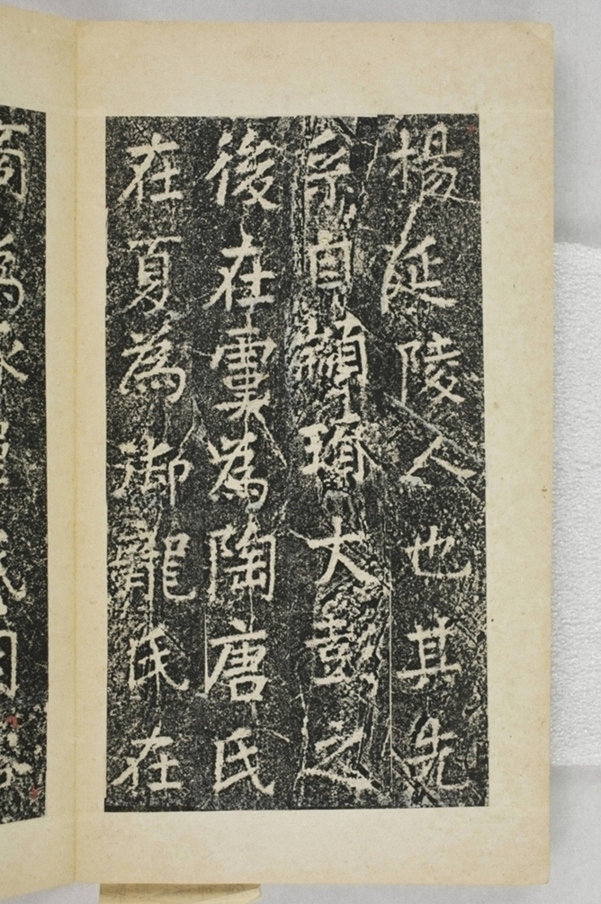 楊延陵人也其先
宗自顓頊大彭之
後在虞為陶唐氏
在夏為御龍氏在